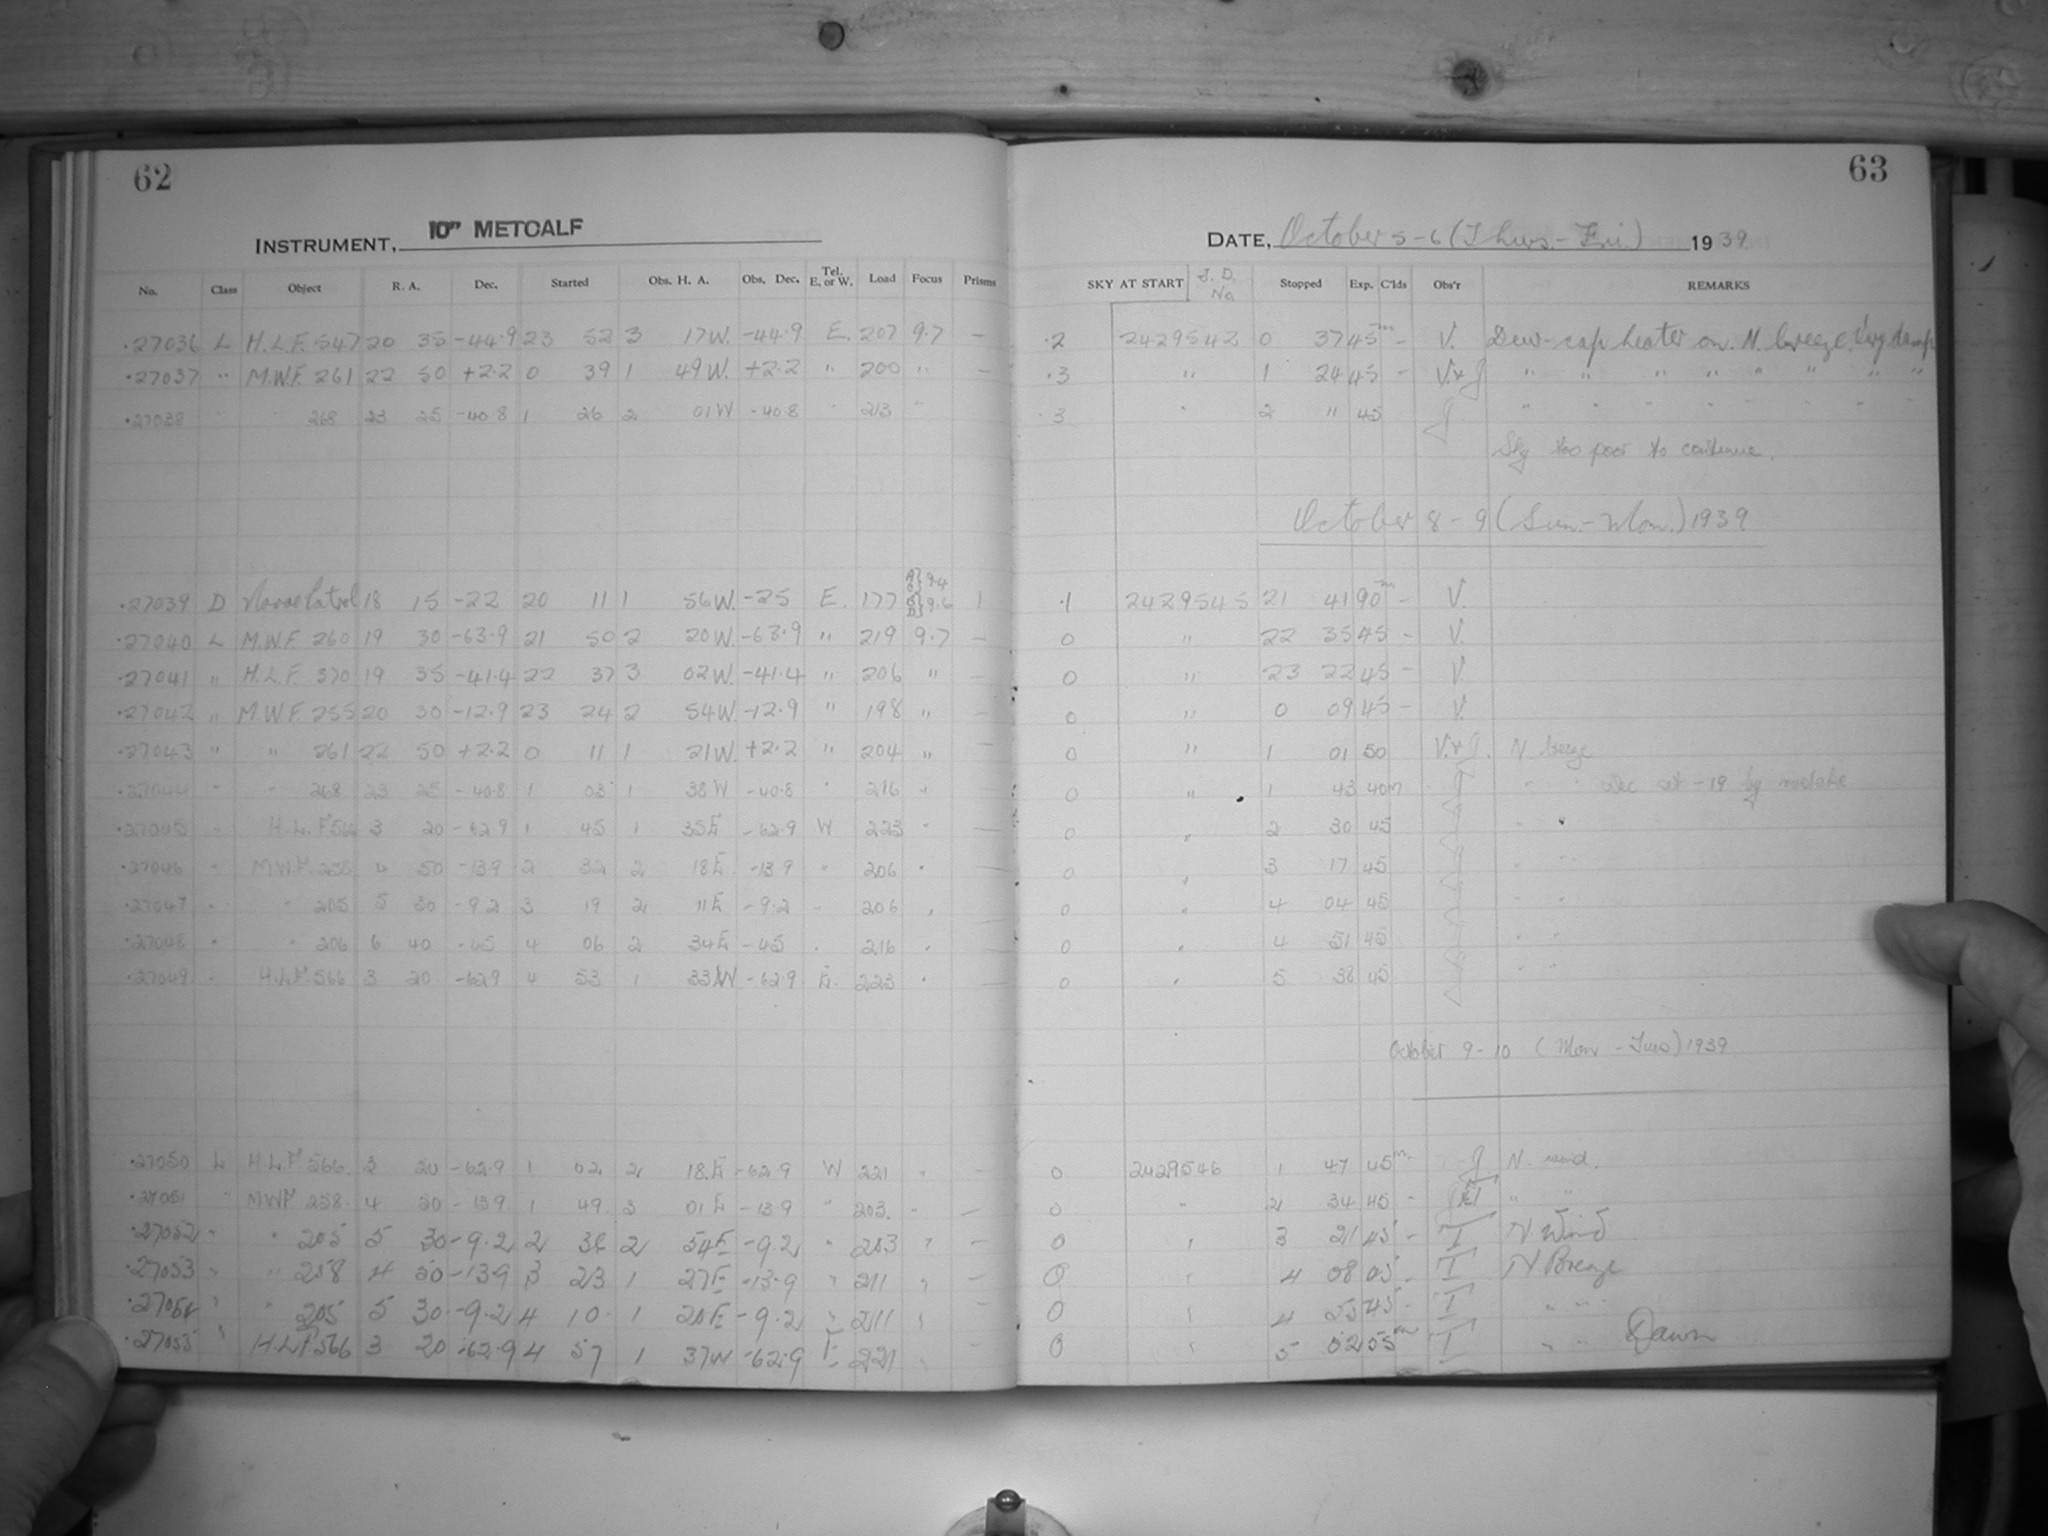 62
INSTRUMENT, 10" METCALF
No. Class Object R. A. Dec. Started Obs. H. A. Obs. Dec. Tel. E. or W. Load Focus Prisms
.27036 L H.L.F. 547 20 35 -44.9 23 52 3 17W. -44.9 E. 207 9.7 —
.27037 " M.W.F. 261 22 50 +2.2 0 39 1 49W. +2.2 " 200 " —
.27038 268 23 25 -40.8 1 26 2 01W -40.8 " 213 "
.27039 D Nova Patrol 18 15 -22 20 11 1 56W. -25 E. 177 9.4 9.6 1
.27040 L M.W.F. 260 19 30 -63.9 21 50 2 20W. -63.9 " 219 9.7 —
.27041 " H.L.F. 370 19 35 -41.4 22 37 3 02W. -41.4 " 206 " —
.27042 " M.W.F. 255 20 30 -12.9 23 24 2 54W. -12.9 " 198 " —
.27043 " " 261 22 50 +2.2 0 11 1 21W. +2.2 " 204 " —
.27044 " " 268 23 25 -40.8 1 03 1 38W -40.8 " 216 "
.27045 " H.L.F 566 3 20 -62.9 1 45 1 35E -62.9 W 223 " —
.27046 " M.W.F. 258 4 50 -13.9 2 32 2 18E. -13.9 " 206 " —
.27047 " " 205 5 30 -9.2 3 19 2 11E -9.2 " 206 " —
.27048 " " 206 6 40 -45 4 06 2 34E -45 " 216 " —
.27049 " H.L.F. 566 3 20 -62.9 4 53 1 33W -62.9 E. 223 " —
.27050 L H.L.F. 566. 3 20 -62.9 1 02 2 18.E -62.9 W 221 " —
.27051 " MWF 258. 4 50 -13.9 1 49. 3 01E -13.9 " 203. " —
.27052 " " 205 5 30 -9.2 2 36 2 54E -9.2 " 203 " —
.27053 " " 258 4 50 -13.9 3 23 1 27E -13.9 " 211 " —
.27054 " " 205 5 30 -9.2 4 10 1 20E -9.2 " 211 " —
.27055 " H.L.F 566 3 20 -62.9 4 57 1 37W -62.9 E 221 " —
63
DATE, October 5-6 (Thurs.-Fri.) 1939
SKY AT START J. D. No. Stopped Exp. C'lds Obs'r REMARKS
.2 2429542 0 37 45m — V. Dew-cap heater on. N. breeze. Very damp
.3 " 1 24 45 — V.+J " " " " " " " "
.3 " 2 11 45 J " " " " " " " "
Sky too poor to continue.
October 8-9 (Sun.-Mon.) 1939
.1 2429545 21 41 90m — V.
0 " 22 35 45 — V.
0 " 23 22 45 — V
0 " 0 09 45 — V.
0 " 1 01 50 V.+J. N. breeze
0 " 1 43 40m J " " Dec set -19 by mistake
0 " 2 30 45 J " "
0 " 3 17 45 J " "
0 " 4 04 45 J " "
0 " 4 51 45 J " "
0 " 5 38 45 J " "
October 9-10 (Mon-Tues) 1939
0 2429546 1 47 45m J N. wind.
0 " 2 34 45 — " "
0 " 3 21 45 — T N Wind
0 " 4 08 T N Breeze
0 " 4 55 45 — T " "
0 " 5 02 05m T " " Dawn